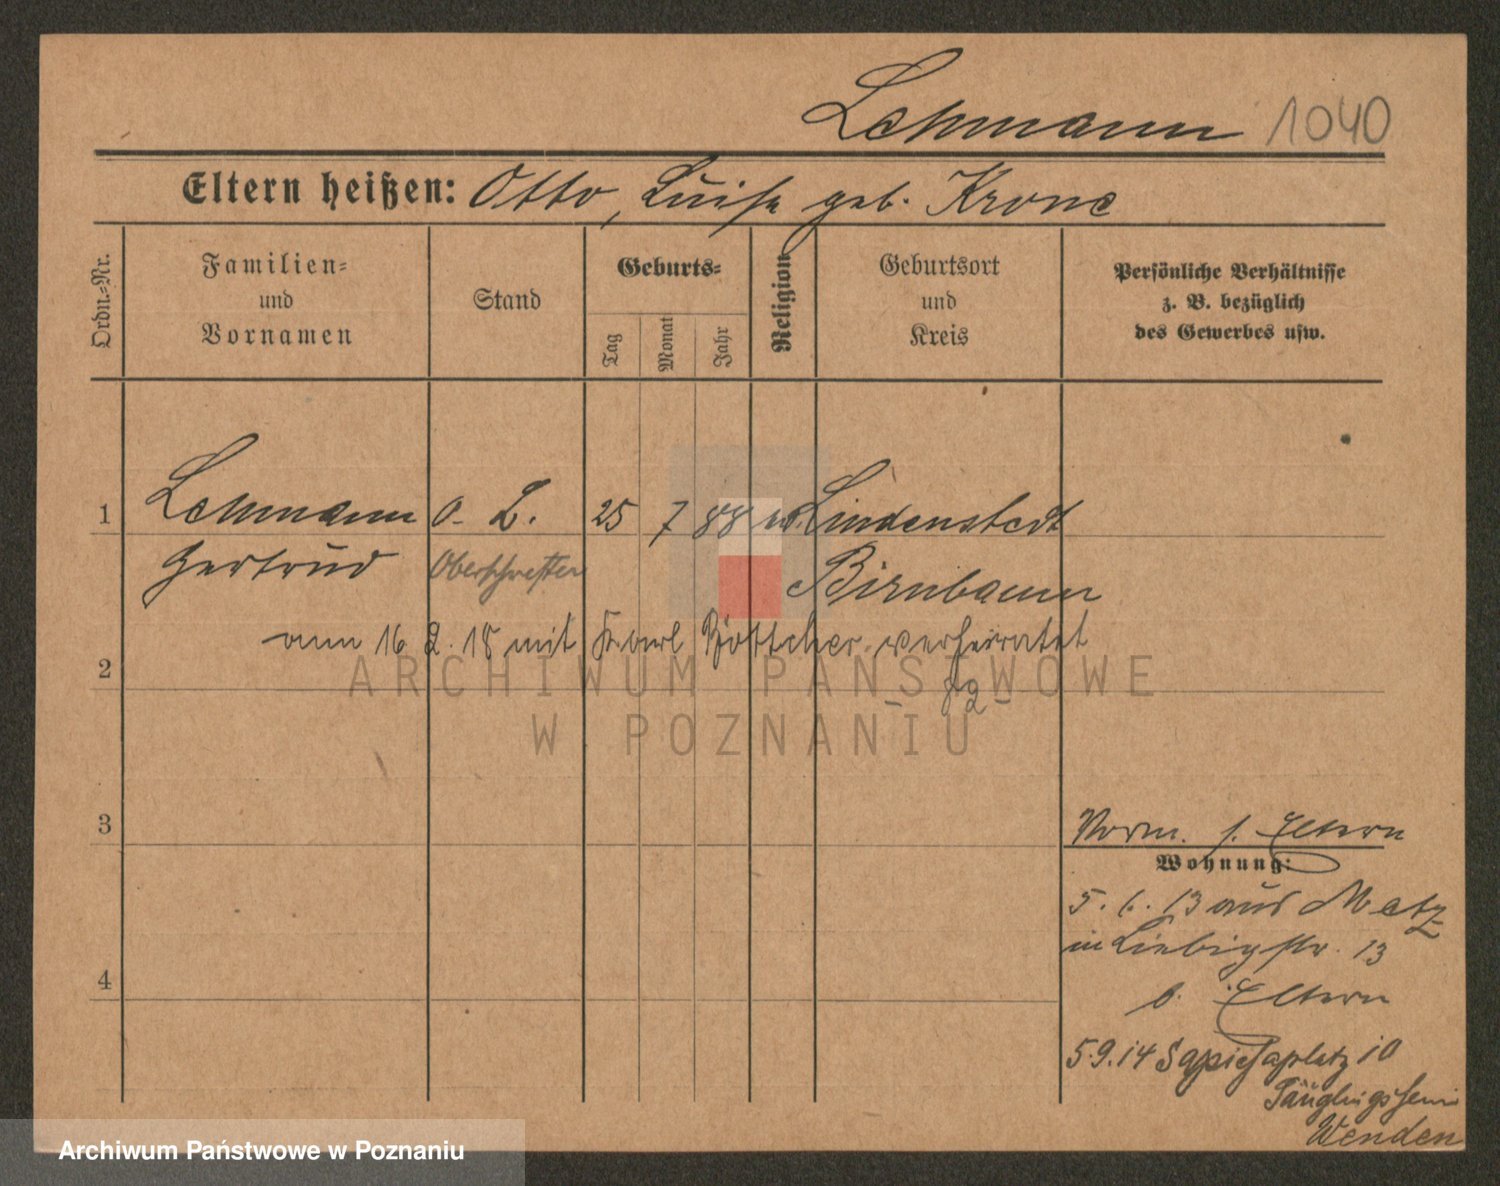 Lehmann 1040
Eltern heißen: Otto, Luise geb. Krone
Ordn.-Nr.
Familien-
und
Vornamen
Stand
Geburts-
Tag
Monat
Jahr
Religion
Geburtsort
und
Kreis
Persönliche Verhältnisse
z. B. bezüglich
des Gewerbes usw.
1 Lehmann o. 25 7 88 Lindenstedt
Gertrud Oberschwester Birnbaum
am 16 2. 18 mit Karl Böttcher verheiratet
2
ARCHIWUM PAŃSTWOWE
W POZNANIU
3
Vorm. s. Eltern
Wohnung:
5. 6. 13 aus Metz
in Liebigstr. 13
4
b. Eltern
5.9.14 Sapiehaplatz 10
Säuglingsheim
Wenden
Archiwum Państwowe w Poznaniu